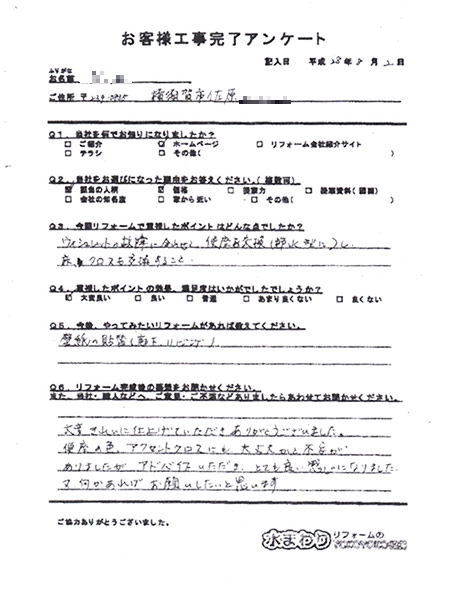 お客様工事完了アンケート
記入日 平成 28年 8月 2日
ふりがな
お名前
ご住所 〒239-0835 横須賀市佐原
Q1. 当社を何でお知りになりましたか？
□ ご紹介 ☑ ホームページ □ リフォーム会社紹介サイト
□ チラシ □ その他( )
Q2. 当社をお選びになった理由をお答えください。( 複数可)
☑ 担当の人柄 ☑ 価格 □ 提案力 □ 提案資料( 図面)
□ 会社の知名度 □ 家から近い □ その他( )
Q3. 今回リフォームで重視したポイントはどんな点でしたか？
ウォシュレットの故障に合わせて、便座を交換(節水型に)し、
床、クロスも交換すること。
Q4. 重視したポイントの効果、満足度はいかがでしたでしょうか？
☑ 大変良い □ 良い □ 普通 □ あまり良くない □ 良くない
Q5. 今後、やってみたいリフォームがあれば教えてください。
壁紙の貼替(廊下、リビング)
Q6. リフォーム完成後の感想をお聞かせください。
また、当社・職人などへ、ご意見・ご不満などありましたらあわせてお聞かせください。
大変きれいに仕上げていただきありがとうございました。
便座の色、アクセントクロスにも、大丈夫かと不安が
ありましたが、アドバイスいただき、とても良い感じになりました。
又何かあればお願いしたいと思います
ご協力ありがとうございました。
水まわり リフォームの